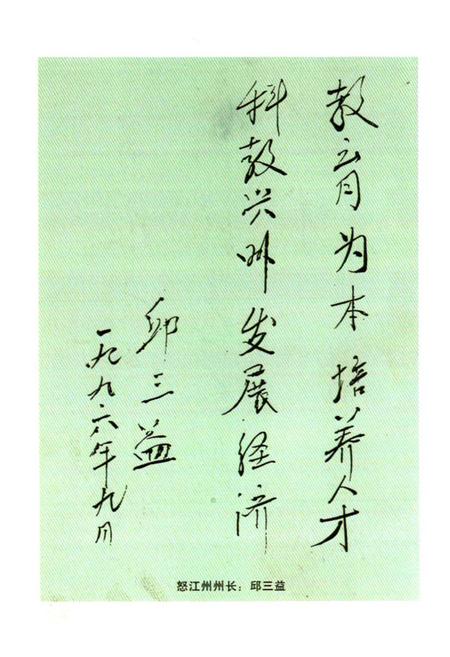 教育为本培养人才
科教兴州发展经济
邱三益
一九九六年九月
怒江州州长：邱三益